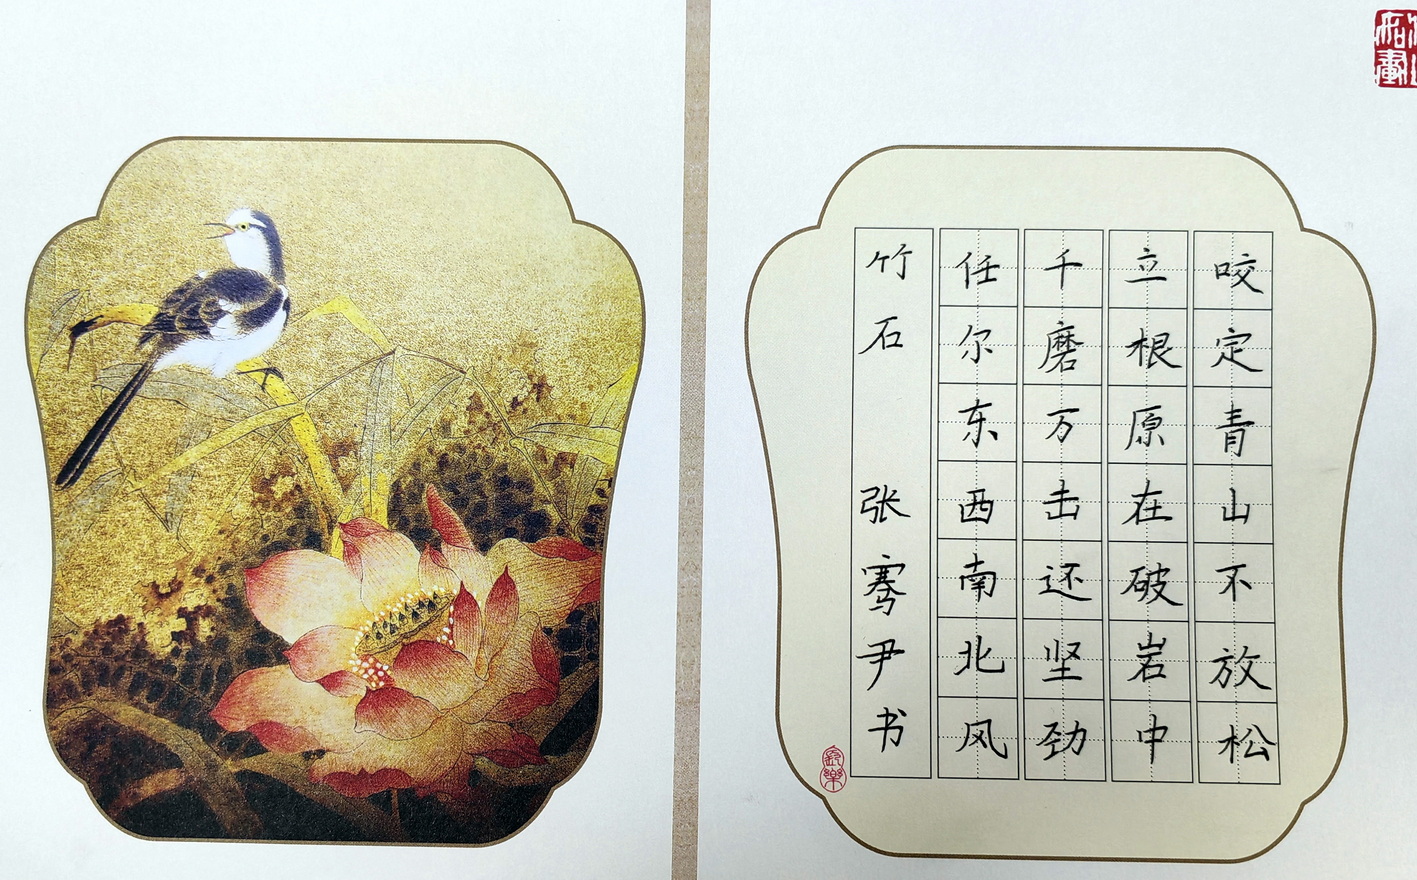 咬定青山不放松
立根原在破岩中
千磨万击还坚劲
任尔东西南北风
竹石 张骞尹书